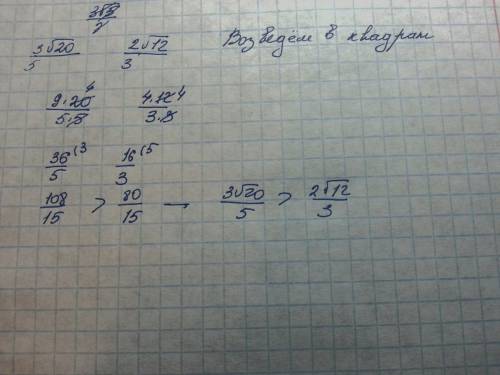 3√20/5 2√12/3 Возведём в квадрат
9·20/5·5 4 4·12/3·3 4
36/5 (3 16/3 (5
108/15 > 80/15 → 3√20/5 > 2√12/3